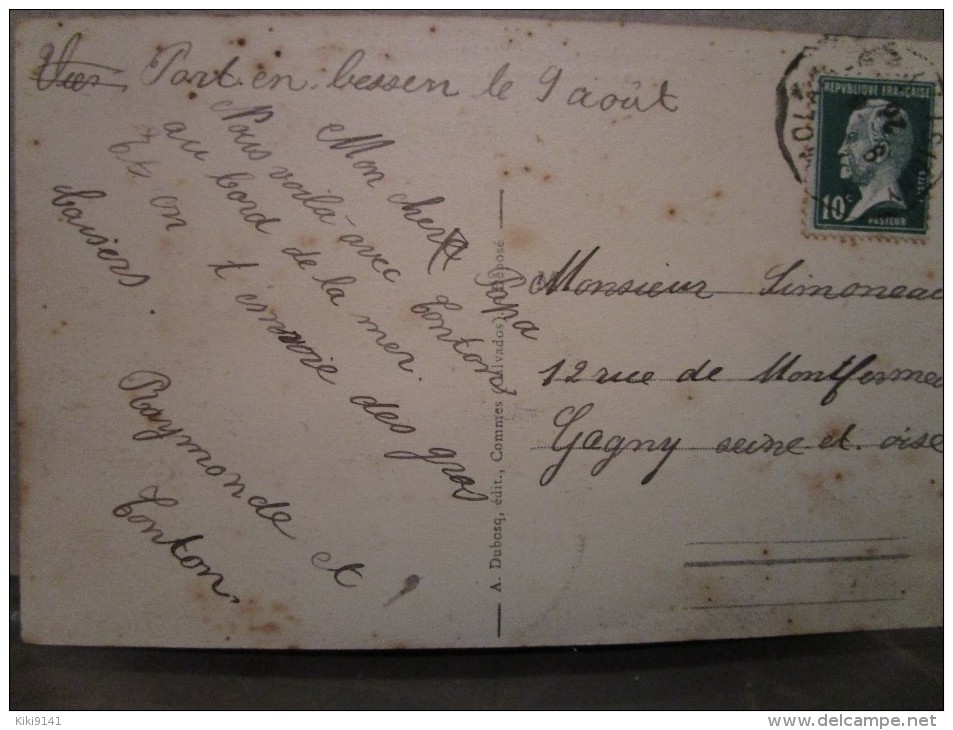 Port en bessen le 9 août
Mon cher Papa
Nous voilà avec Tonton
au bord de la mer.
Et on t'envoie des gros
baisers
Raymonde et
Tonton.
A. Dubosq, édit., Commes (Calvados). Déposé
REPUBLIQUE FRANÇAISE
10c
PASTEUR
Monsieur Simoneau
12 rue de Montfermei
Gagny seine et oise
Kiki9141
www.delcampe.net